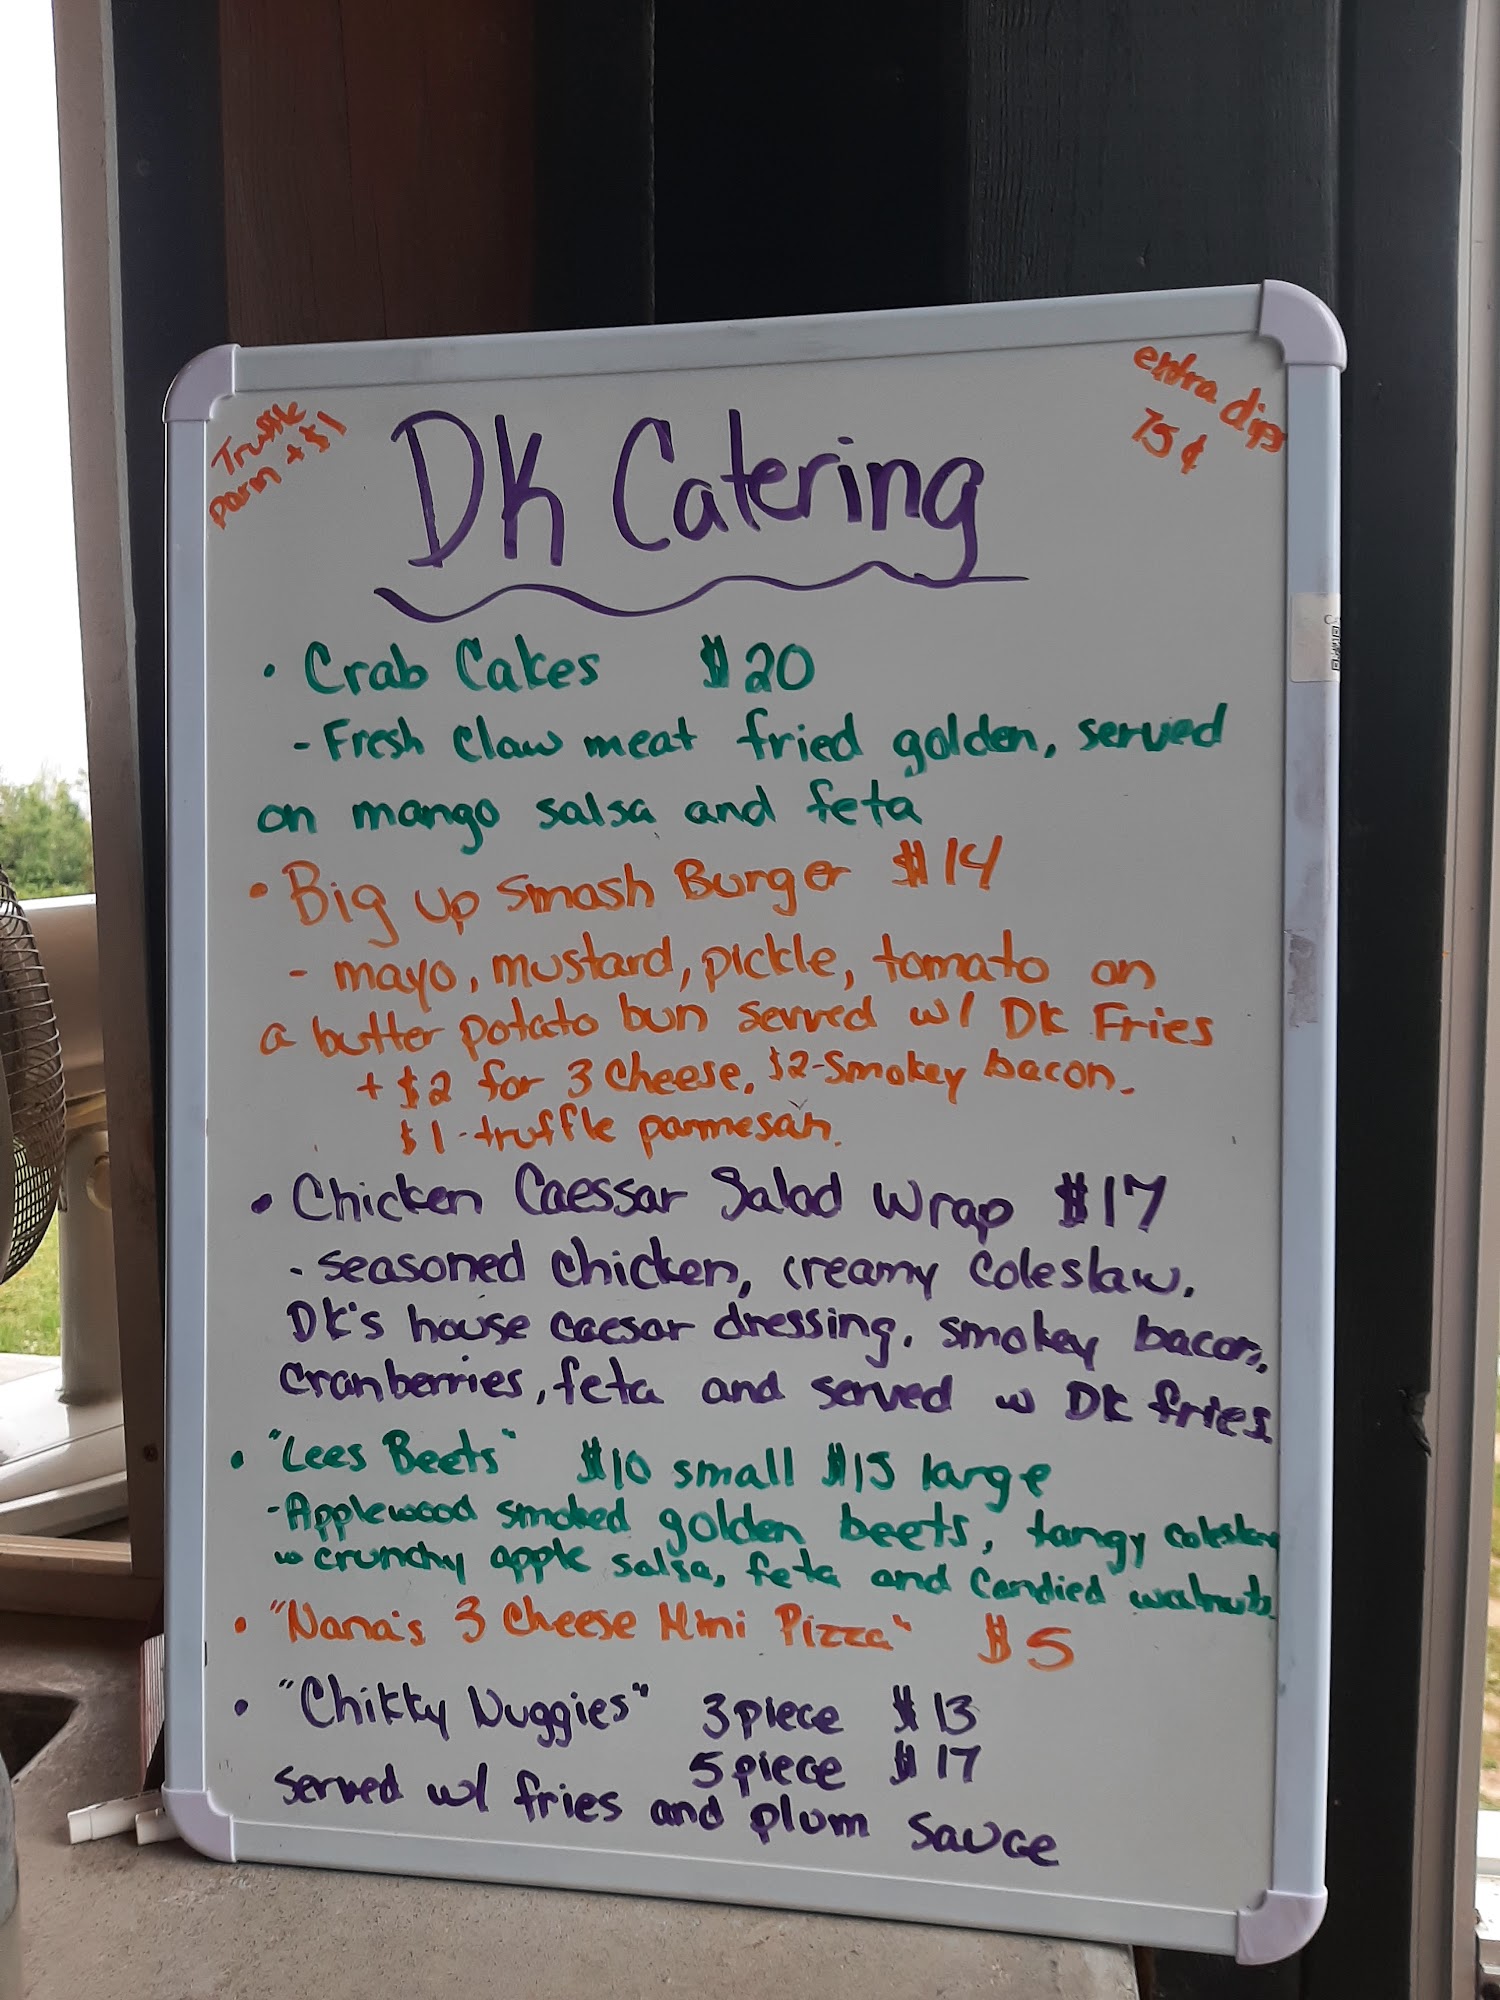 Truffle
parm + $1
extra dips
75¢
DK Catering
• Crab Cakes $20
- Fresh claw meat fried golden, served
on mango salsa and feta
• Big up Smash Burger $14
- mayo, mustard, pickle, tomato on
a butter potato bun served w/ DK Fries
+ $2 for 3 cheese, $2-Smokey bacon.
$1-truffle parmesan.
• Chicken Caessar Salad Wrap $17
- seasoned chicken, creamy coleslaw,
DK's house caesar dressing, smokey bacon,
cranberries, feta and served w DK fries
• "Lees Beets" $10 small $15 large
- Applewood smoked golden beets, tangy coleslaw
w crunchy apple salsa, feta and candied walnuts.
• "Nana's 3 Cheese Mini Pizza" $5
• "Chikky Nuggies" 3 piece $13
5 piece $17
served w/ fries and plum sauce